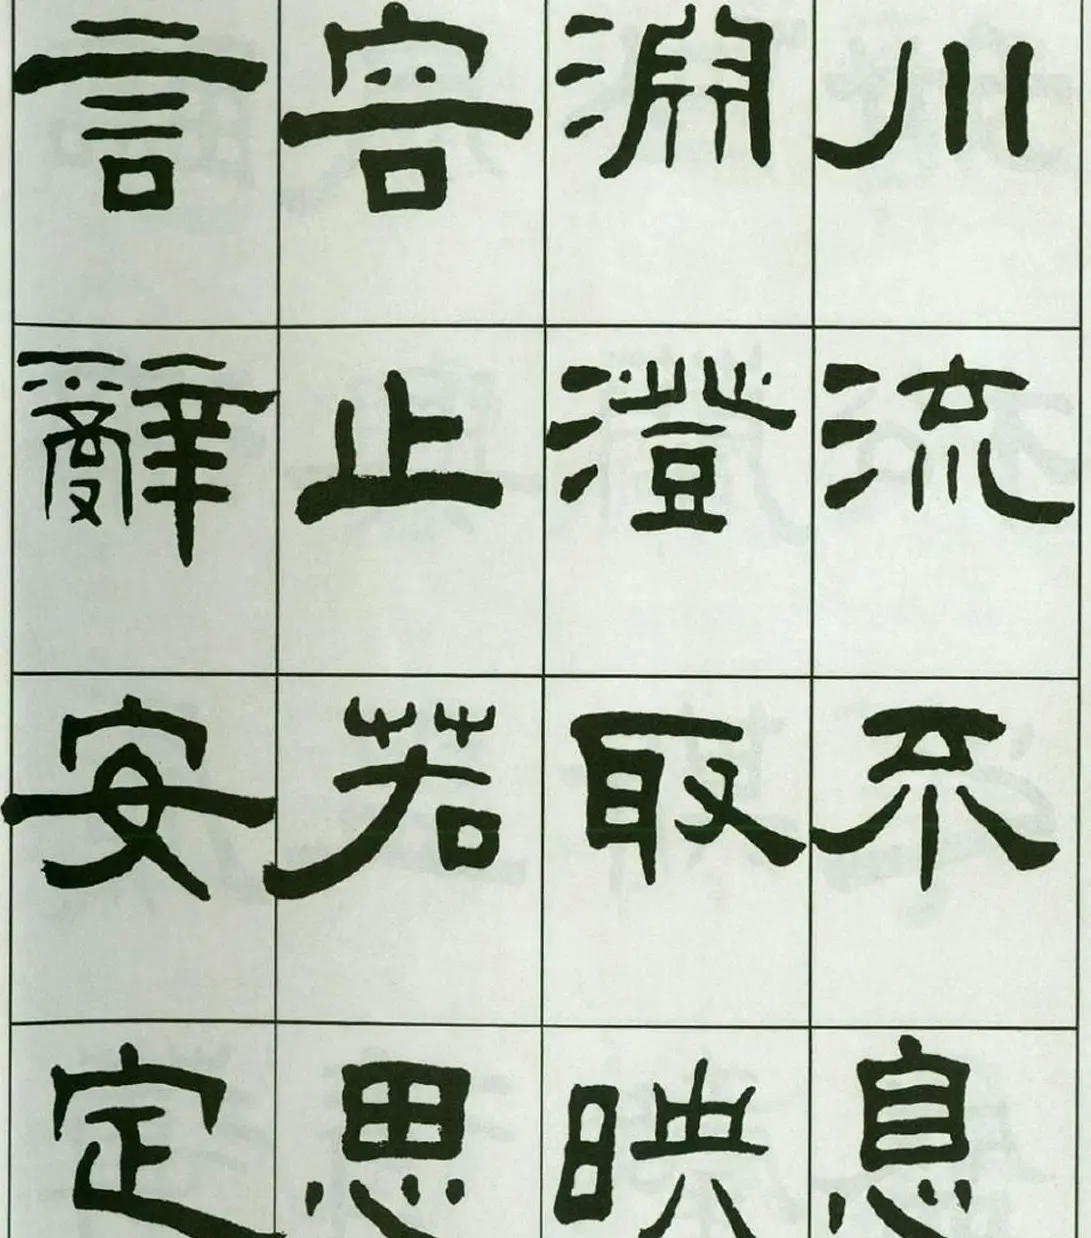 川流不息
淵澄取映
容止若思
言辭安定